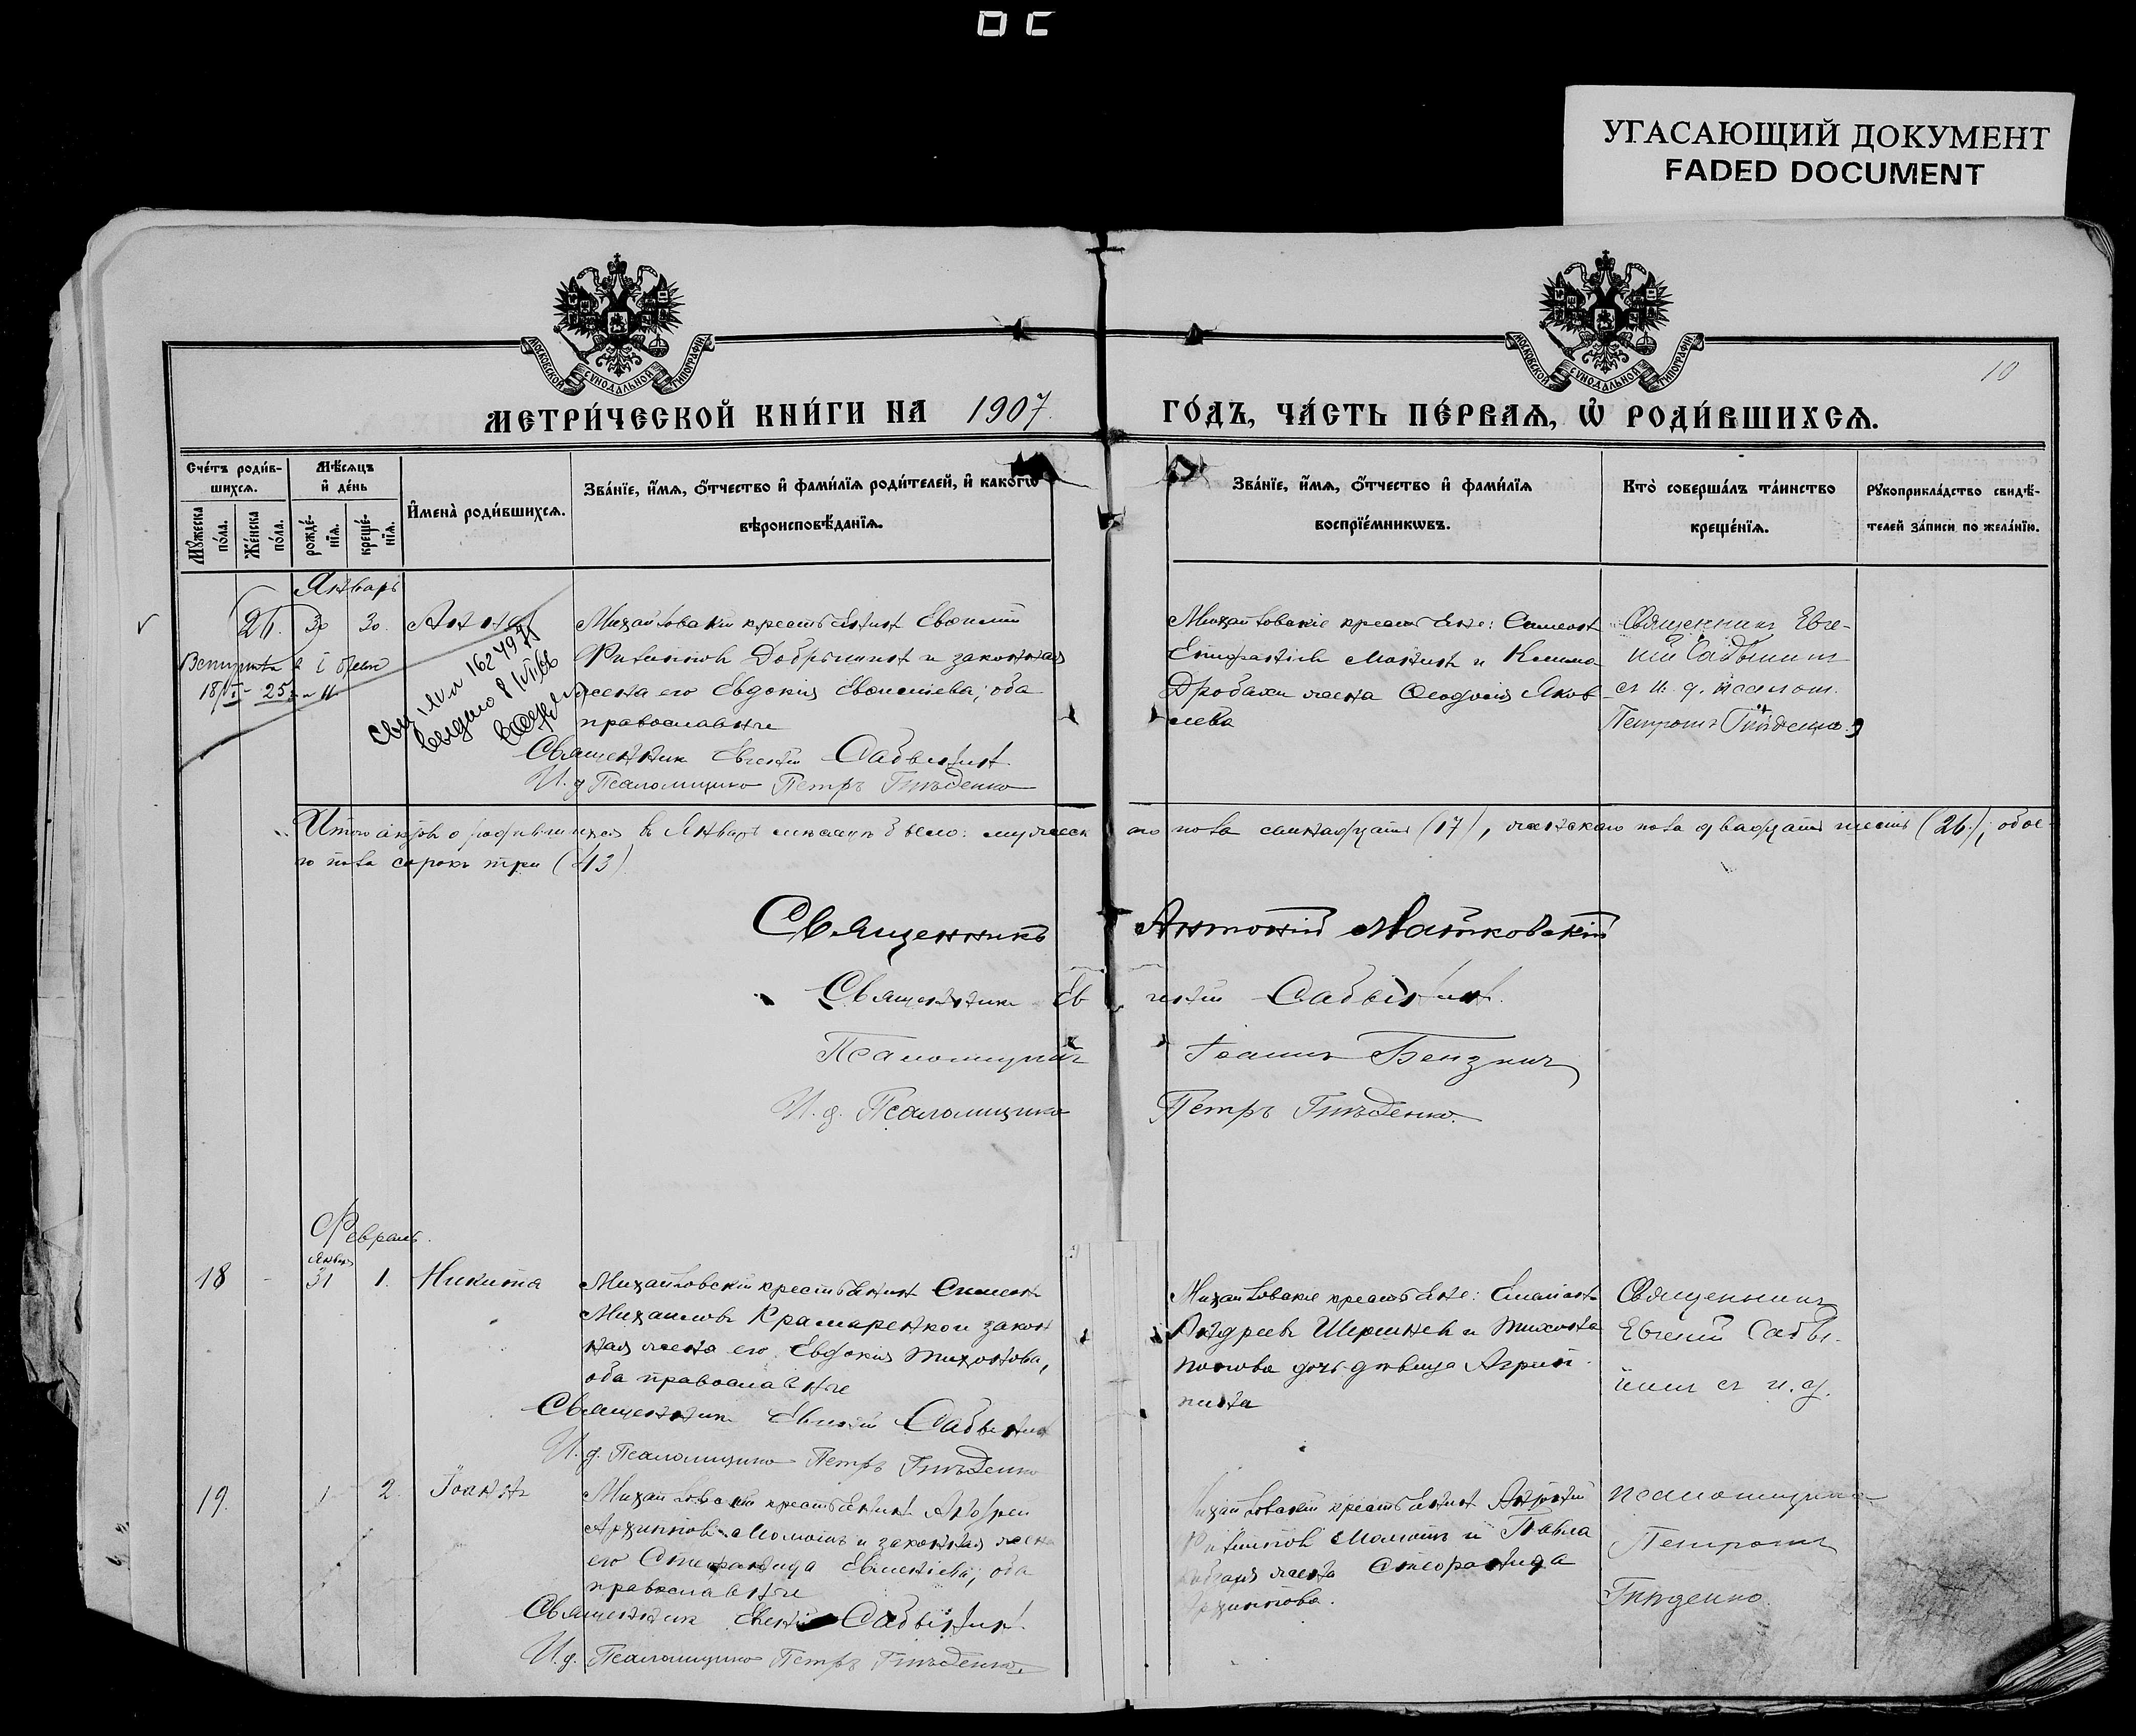 УГАСАЮЩИЙ ДОКУМЕНТ
FADED DOCUMENT
МОСКОВСКОЙ СѴНОДАЛЬНОЙ ТИПОГРАФІИ
МОСКОВСКОЙ СѴНОДАЛЬНОЙ ТИПОГРАФІИ
10
МЕТРИ́ЧЕСКОЙ КНИ́ГИ НА 1907. ГО́ДЪ, ЧА́СТЬ ПЕ́РВАѦ, Ѡ РОДИ́ВШИХСѦ.
Сче́тъ роди́в-
шихсѧ.
Мꙋжеска по́ла.
Же́нска по́ла.
Мѣ́сѧцъ
и҆ де́нь
рожде́-
нїѧ.
креще́-
нїѧ.
И҆мена̀ роди́вшихсѧ.
Зва́нїе, и҆́мѧ, ѻ҆́тчество и҆ фами́лїѧ роди́телей, и҆ какогѡ
вѣроисповѣ́данїѧ.
Зва́нїе, и҆́мѧ, ѻ҆́тчество и҆ фами́лїѧ
воспрїе́мникѡвъ.
Кто̀ соверша́лъ та́инство
креще́нїѧ.
Рꙋкоприкла́дство свидѣ́-
телей за́писи по жела́нїю.
Январь
26. 30 30. Анна
Михайловскій крестьянинъ Евѳимій
Филипповъ Добрынинъ и законная
жена его Евдокія Евѳиміева; оба
православные
Священникъ Евгеній Сабынинъ.
И. д. Псаломщика Петръ Гнѣденко
Михайловскіе крестьяне: Симеонъ
жена Ѳеодосія Яков-
лева
Священникъ Евге-
ній Сабынинъ
съ и. д. псалом.
Петромъ Гнѣденко
Вступила в I бракъ
выдано
Итого актовъ о родившихся въ Январѣ мѣсяцѣ было: мужеск аго пола семнадцать (17), женскаго пола двадцать шесть (26), обое-
го пола сорокъ три (43)
Священникъ Антоній Матковскій
Священникъ Евгеній Сабынинъ.
Псаломщикъ Іоаннъ
И. д. Псаломщика Петръ Гнѣденко.
Февраль.
18 - Январь 31 1. Никита
Михайловскій крестьянинъ Симеонъ
Михаиловъ Крамаренко и закон
ная жена его Евдокія Тихонова,
оба православные
Священникъ Евгеній Сабынинъ
И. д. Псаломщика Петръ Гнѣденко
Михайловскіе крестьяне:
Андреевъ и Тихона
дочь дѣвица Агрип-
пина
Священникъ
Евгеній Сабы-
нинъ съ и. д.
19. 1 2. Іоаннъ
Михайловскій крестьянинъ Андрей
Архиповъ Момотъ и законная жена
его Стефанида Евменіева; оба
православные
Священникъ Евгеній Сабынинъ.
И. д. Псаломщика Петръ Гнѣденко
Михайловскій крестьянинъ Андрей
Филипповъ Момотъ и Павла
жена Стефанида
Архипова.
псаломщика
Петромъ
Гнѣденко.